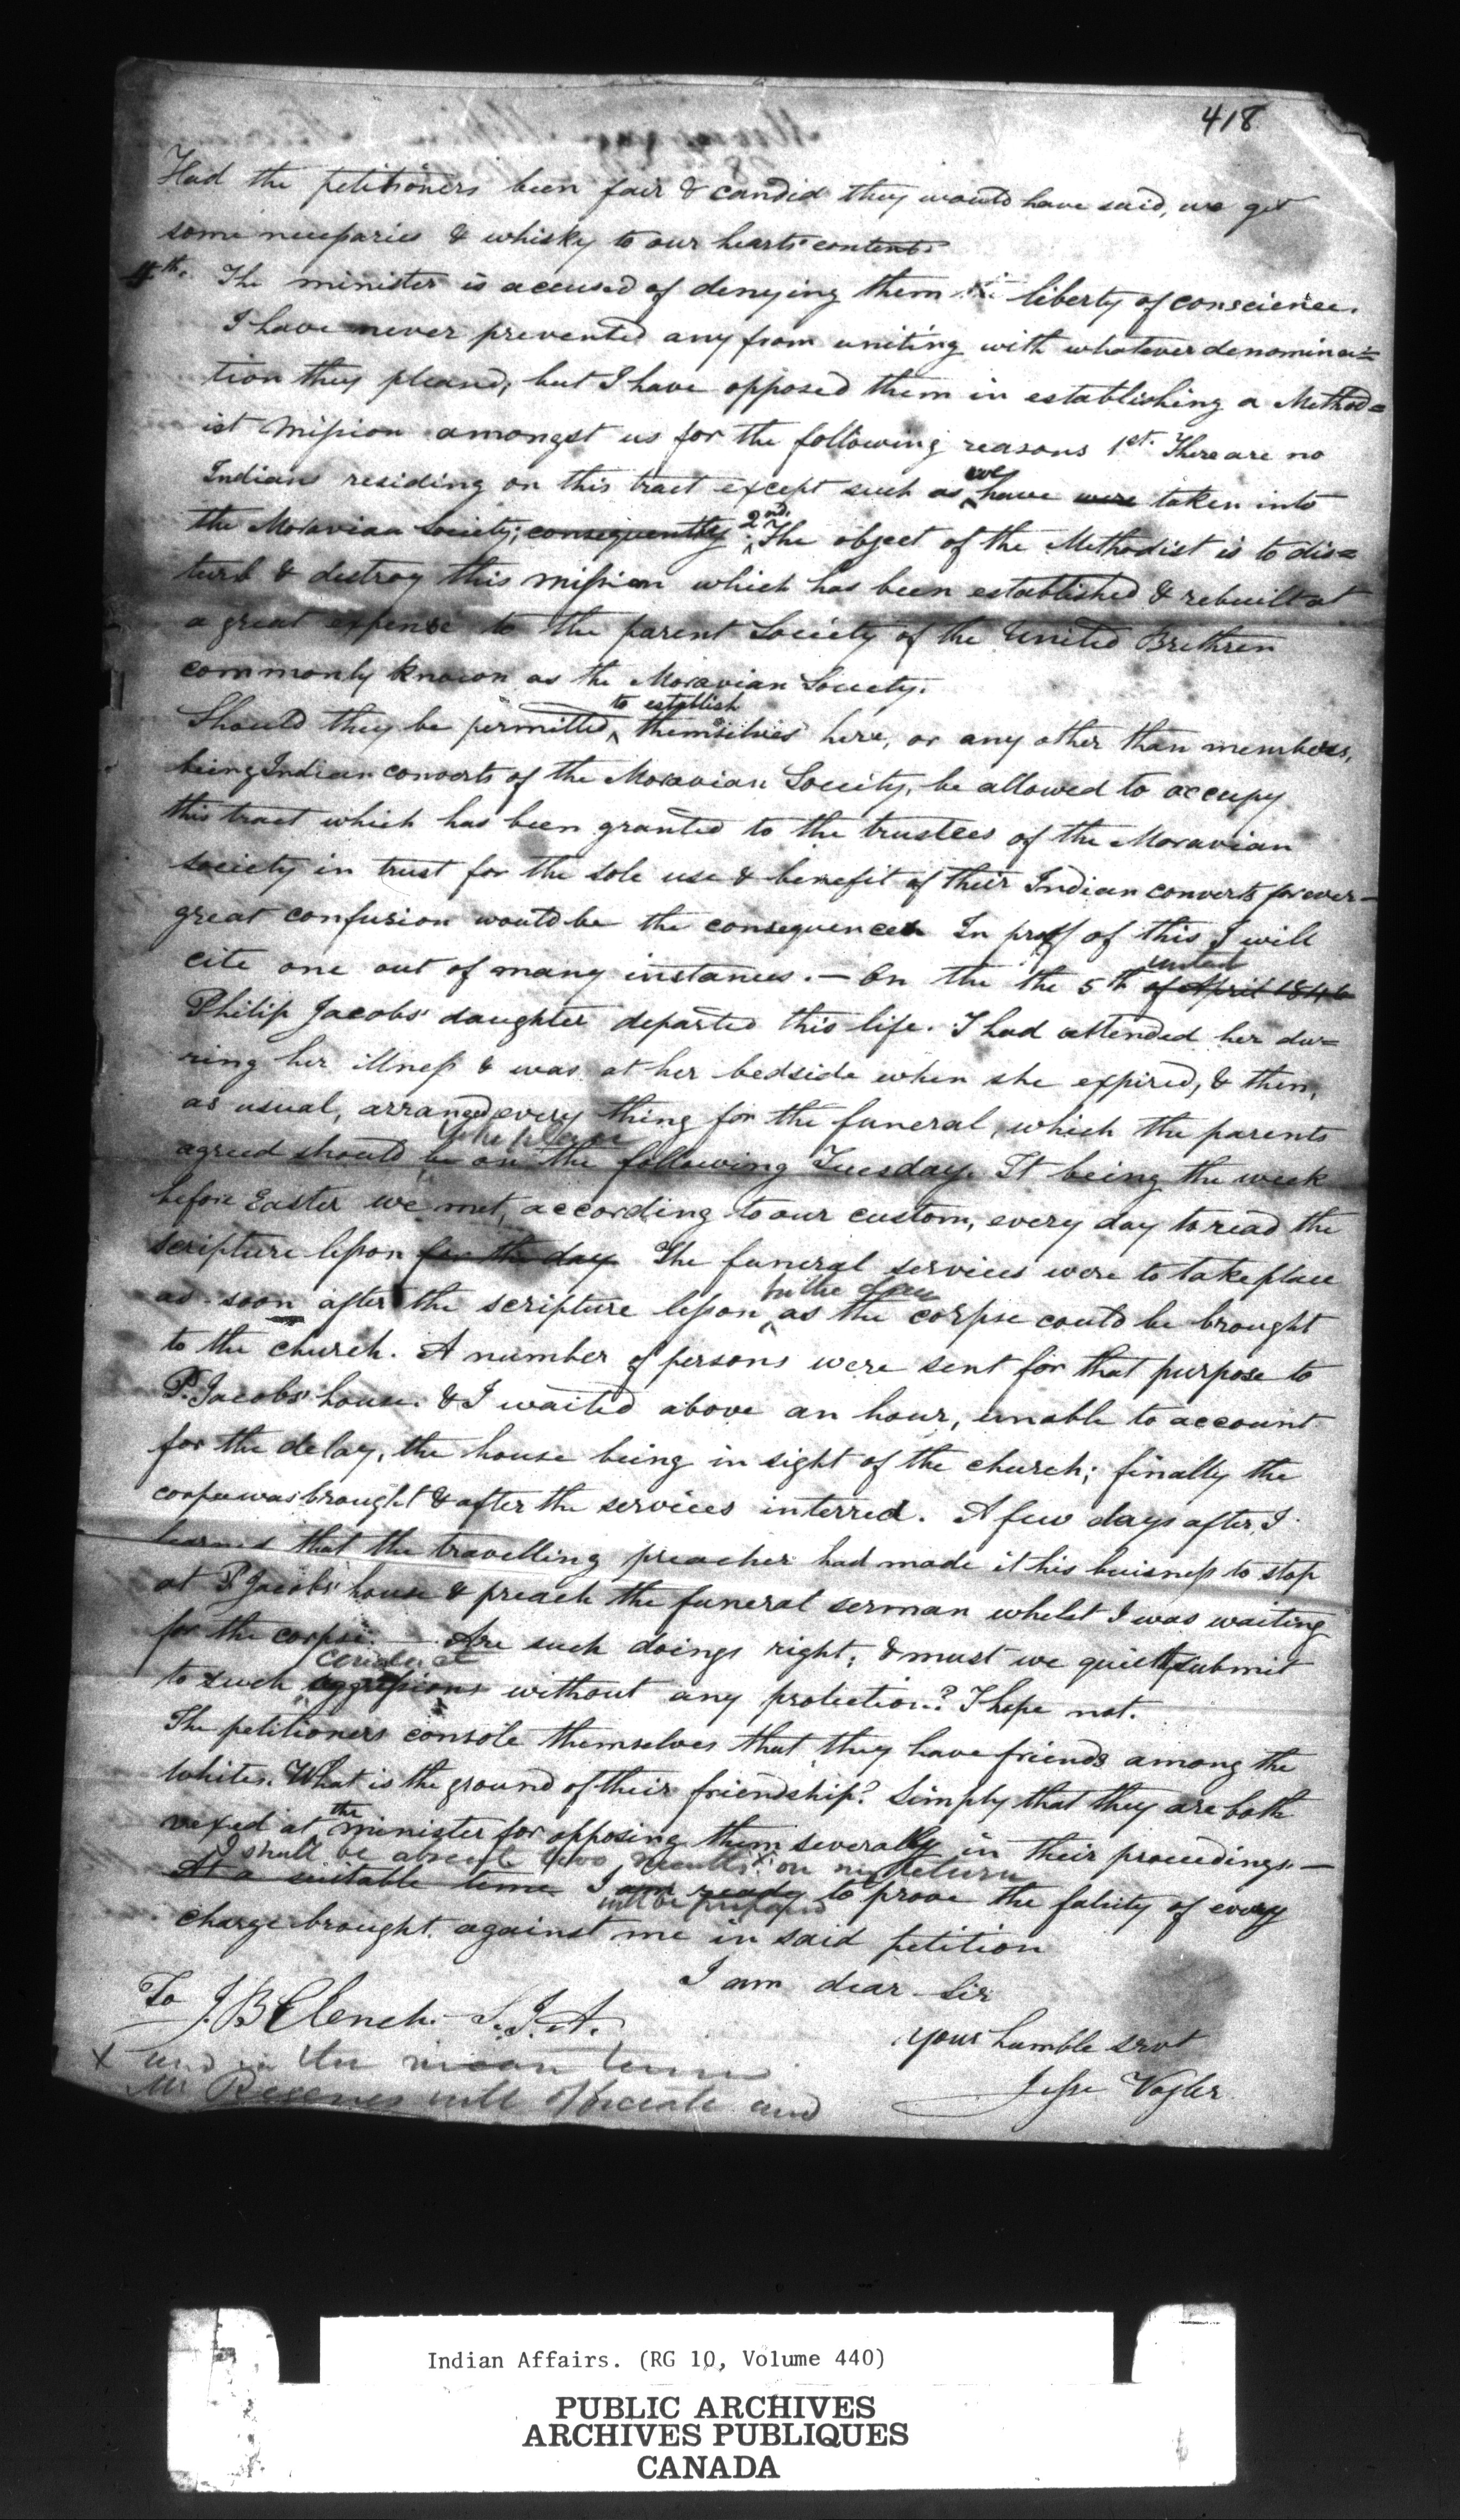 418
Had the petitioners been fair & candid they would have said, we get
some necessaries & whisky to our hearts content.
4th. The minister is accused of denying them liberty of conscience.
I have never prevented any from uniting with whatever denomina=
tion they pleased, but I have opposed them in establishing a Method=
ist Mission amongst us for the following reasons 1st. There are no
Indians residing on this tract except such as we have were taken into
the Moravian Society; consequently 2nd. The object of the Methodist is to dis=
turb & destroy this mission which has been established & rebuilt at
a great expense to the parent Society of the United Brethren
commonly known as the Moravian Society.
Should they be permitted to establish themselves here, or any other than members,
being Indian converts of the Moravian Society, be allowed to occupy
this tract which has been granted to the trustees of the Moravian
society in trust for the sole use & benefit of their Indian converts forever —
great confusion would be the consequence In proof of this I will
cite one out of many instances. — On the the 5th instant of April 1846
Philip Jacobs' daughter departed this life. I had attended her du=
ring her illness & was at her bedside when she expired, & then,
as usual, arranged every thing for the funeral, which the parents
agreed should take place be on the following Tuesday. It being the week
before Easter we met, according to our custom, every day to read the
scripture lesson for the day The funeral services were to take place
as soon after the scripture lesson for the day as the corpse could be brought
to the church. A number of persons were sent for that purpose to
P. Jacobs' house. & I waited above an hour, unable to account
for the delay, the house being in sight of the church; finally the
corpse was brought & after the services interred. A few days after I
learned that the travelling preacher had made it his buisness to stop
at P Jacobs' house & preach the funeral serman whilst I was waiting
for the corpse. — Are such doings right, & must we quietly submit
to such conduct aggressions without any protection? I hope not.
The petitioners console themselves that they have friends among the
Whites. What is the ground of their friendship? Simply that they are both
vexed at the minister for opposing them severally in their proceedings —
I shall be absent two months x on my return
At a suitable time I am ready will be prepared to prove the falsity of every
charge brought against me in said petition
I am dear Sir
To J. B Clench. S. I. A.
your humble servt
Jesse Vogler
x and in the mean time
Mr will officiate and
Indian Affairs. (RG 10, Volume 440)
PUBLIC ARCHIVES
ARCHIVES PUBLIQUES
CANADA